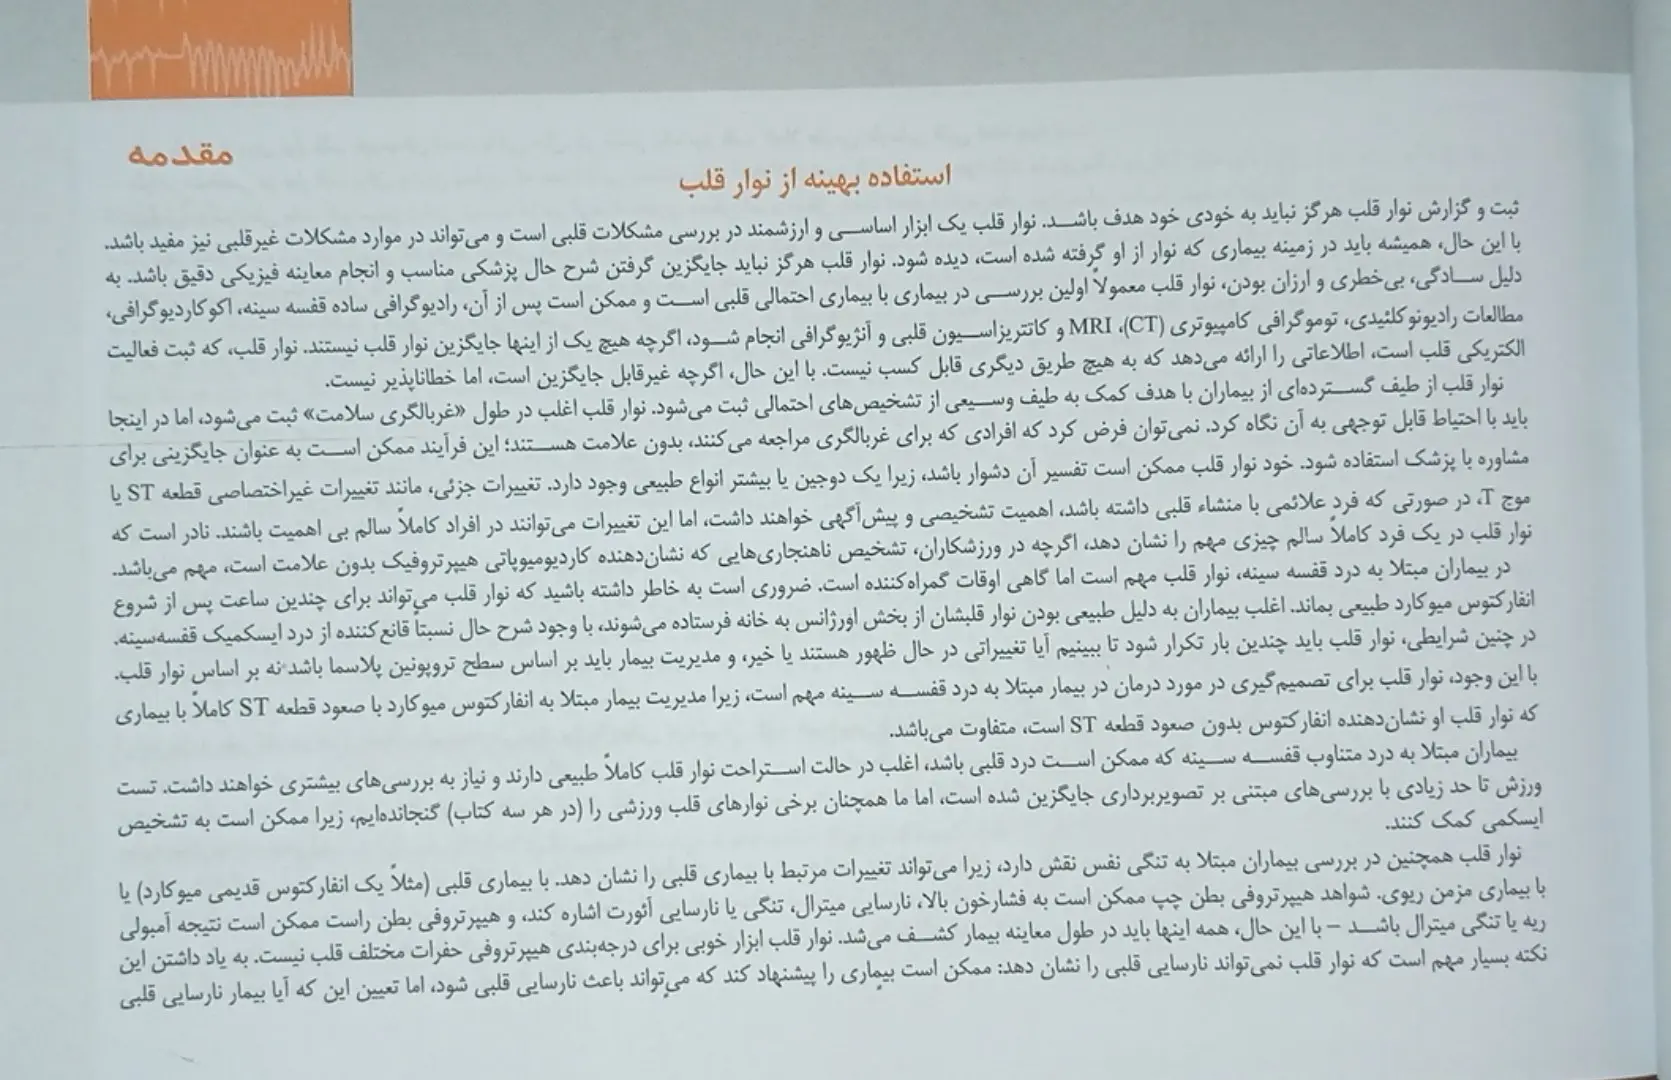 مقدمه
استفاده بهینه از نوار قلب
ثبت و گزارش نوار قلب هرگز نباید به خودی خود هدف باشد. نوار قلب یک ابزار اساسی و ارزشمند در بررسی مشکلات قلبی است و می‌تواند در موارد مشکلات غیرقلبی نیز مفید باشد.
با این حال، همیشه باید در زمینه بیماری که نوار از او گرفته شده است، دیده شود. نوار قلب هرگز نباید جایگزین گرفتن شرح حال پزشکی مناسب و انجام معاینه فیزیکی دقیق باشد. به
دلیل سادگی، بی‌خطری و ارزان بودن، نوار قلب معمولاً اولین بررسی در بیماری با بیماری احتمالی قلبی است و ممکن است پس از آن، رادیوگرافی ساده قفسه سینه، اکوکاردیوگرافی،
مطالعات رادیونوکلئیدی، توموگرافی کامپیوتری (CT)، MRI و کاتتریزاسیون قلبی و آنژیوگرافی انجام شود، اگرچه هیچ یک از اینها جایگزین نوار قلب نیستند. نوار قلب، که ثبت فعالیت
الکتریکی قلب است، اطلاعاتی را ارائه می‌دهد که به هیچ طریق دیگری قابل کسب نیست. با این حال، اگرچه غیرقابل جایگزین است، اما خطاناپذیر نیست.
نوار قلب از طیف گسترده‌ای از بیماران با هدف کمک به طیف وسیعی از تشخیص‌های احتمالی ثبت می‌شود. نوار قلب اغلب در طول «غربالگری سلامت» ثبت می‌شود، اما در اینجا
باید با احتیاط قابل توجهی به آن نگاه کرد. نمی‌توان فرض کرد که افرادی که برای غربالگری مراجعه می‌کنند، بدون علامت هستند؛ این فرآیند ممکن است به عنوان جایگزینی برای
مشاوره با پزشک استفاده شود. خود نوار قلب ممکن است تفسیر آن دشوار باشد، زیرا یک دوجین یا بیشتر انواع طبیعی وجود دارد. تغییرات جزئی، مانند تغییرات غیراختصاصی قطعه ST یا
موج T، در صورتی که فرد علائمی با منشاء قلبی داشته باشد، اهمیت تشخیصی و پیش‌آگهی خواهند داشت، اما این تغییرات می‌توانند در افراد کاملاً سالم بی اهمیت باشند. نادر است که
نوار قلب در یک فرد کاملاً سالم چیزی مهم را نشان دهد، اگرچه در ورزشکاران، تشخیص ناهنجاری‌هایی که نشان‌دهنده کاردیومیوپاتی هیپرتروفیک بدون علامت است، مهم می‌باشد.
در بیماران مبتلا به درد قفسه سینه، نوار قلب مهم است اما گاهی اوقات گمراه‌کننده است. ضروری است به خاطر داشته باشید که نوار قلب می‌تواند برای چندین ساعت پس از شروع
انفارکتوس میوکارد طبیعی بماند. اغلب بیماران به دلیل طبیعی بودن نوار قلبشان از بخش اورژانس به خانه فرستاده می‌شوند، با وجود شرح حال نسبتاً قانع‌کننده از درد ایسکمیک قفسه‌سینه.
در چنین شرایطی، نوار قلب باید چندین بار تکرار شود تا ببینیم آیا تغییراتی در حال ظهور هستند یا خیر، و مدیریت بیمار باید بر اساس سطح تروپونین پلاسما باشد نه بر اساس نوار قلب.
با این وجود، نوار قلب برای تصمیم‌گیری در مورد درمان در بیمار مبتلا به درد قفسه سینه مهم است، زیرا مدیریت بیمار مبتلا به انفارکتوس میوکارد با صعود قطعه ST کاملاً با بیماری
که نوار قلب او نشان‌دهنده انفارکتوس بدون صعود قطعه ST است، متفاوت می‌باشد.
بیماران مبتلا به درد متناوب قفسه سینه که ممکن است درد قلبی باشد، اغلب در حالت استراحت نوار قلب کاملاً طبیعی دارند و نیاز به بررسی‌های بیشتری خواهند داشت. تست
ورزش تا حد زیادی با بررسی‌های مبتنی بر تصویربرداری جایگزین شده است، اما ما همچنان برخی نوارهای قلب ورزشی را (در هر سه کتاب) گنجانده‌ایم، زیرا ممکن است به تشخیص
ایسکمی کمک کنند.
نوار قلب همچنین در بررسی بیماران مبتلا به تنگی نفس نقش دارد، زیرا می‌تواند تغییرات مرتبط با بیماری قلبی را نشان دهد. با بیماری قلبی (مثلاً یک انفارکتوس قدیمی میوکارد) یا
با بیماری مزمن ریوی. شواهد هیپرتروفی بطن چپ ممکن است به فشارخون بالا، نارسایی میترال، تنگی یا نارسایی آئورت اشاره کند، و هیپرتروفی بطن راست ممکن است نتیجه آمبولی
ریه یا تنگی میترال باشد – با این حال، همه اینها باید در طول معاینه بیمار کشف می‌شد. نوار قلب ابزار خوبی برای درجه‌بندی هیپرتروفی حفرات مختلف قلب نیست. به یاد داشتن این
نکته بسیار مهم است که نوار قلب نمی‌تواند نارسایی قلبی را نشان دهد: ممکن است بیماری را پیشنهاد کند که می‌تواند باعث نارسایی قلبی شود، اما تعیین این که آیا بیمار نارسایی قلبی